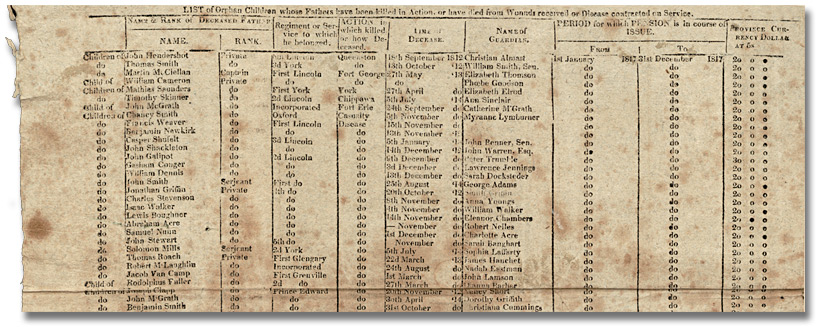 LIST of Orphan Children whose Fathers have been killed in Action, or have died from Wounds received or Disease contracted on Service.
NAME & RANK OF DECEASED FATHER. Regiment or Service to which he belonged. ACTION in which killed or how Deceased. TIME OF DECEASE. NAME OF GUARDIAN. PERIOD for which PENSION is in course of ISSUE. PROVINCE CURRENCY DOLLAR At 5s
NAME. RANK. From To
Children of John Hendershot Private Lincoln Queenston 18th September 1812 Christian Almost 1st January 1817 31st December 1817 20 0 0
do Thomas Smith do 3d York do 13th October William Smith, Sen. do do 20 0 0
do Martin McClellan Captain First Lincoln Fort George 27th May Elizabeth Thomson do do 20 0 0
Child of William Cameron Private do do do Phebe Goodson do do 20 0 0
Children of Mathias Saunders do First York York 27th April do Elizabeth Elrod do do 20 0 0
do Timothy Skinner do 2d Lincoln Chippawa 5th July Ann Sinclair do do 20 0 0
Child of John McGrath do Incorporated Fort Erie 24th September do Catherine McGrath do do 20 0 0
Children of Chancy Smith do Oxford Casualty 5th November do Myranne Lymburner do do 20 0 0
do Francis Weaver do First Lincoln Disease 15th November do do 20 0 0
do Benjamin Newkirk do do do November do do 20 0 0
do Casper Shufelt do 3d Lincoln do 5th January John Benner, Sen. do do 20 0 0
do John Shockleton do do do 14th December John Warren, Esq. do do 20 0 0
do John Galipot do 2d Lincoln do 6th December do Peter do do 20 0 0
do Gasham Conger do do do December do Lawrence Jennings do do 20 0 0
do William Dennis do do do 13th December do Sarah Docksteder do do 20 0 0
do John Smith Serjeant First do do 25th August George Adams do do 20 0 0
do Jonathan Griffin Private 4th do do 20th October Smith Griffin do do 20 0 0
do Charles Stevenson do do do November do Anna Youngs do do 20 0 0
do Isaac Walker do do do November do William Walker do do 20 0 0
do Lewis Boughner do do do 14th November do Eleanor Chambers do do 20 0 0
do Abraham Acre do do do November do Robert Nelles do do 20 0 0
do Samuel Nunn do do do December do Charlotte Acre do do 20 0 0
do John Stewart do 5th do do November do Sarah Banghart do do 20 0 0
do Solomon Mills Serjeant 2d York do 5th July do Sophia Lafferty do do 20 0 0
do Thomas Roach Private First Glengary do 22d March James Hanchet do do 20 0 0
do Robert McLaughlin do Incorporated do 24th August do Nadah Eastman do do 20 0 0
do Jacob Van Camp do First Grenville do 1st March do John Lamson do do 20 0 0
Child of Rodolphus Fuller do 2d do do 27th March do do do 20 0 0
Children of Joseph Clapp do Prince Edward do 20th November Nancy Short do do 20 0 0
do John McGrath do do do 30th April Dorothy Griffith do do 20 0 0
do Benjamin Smith do do do 31st October do Christiana Cummings do do 20 0 0